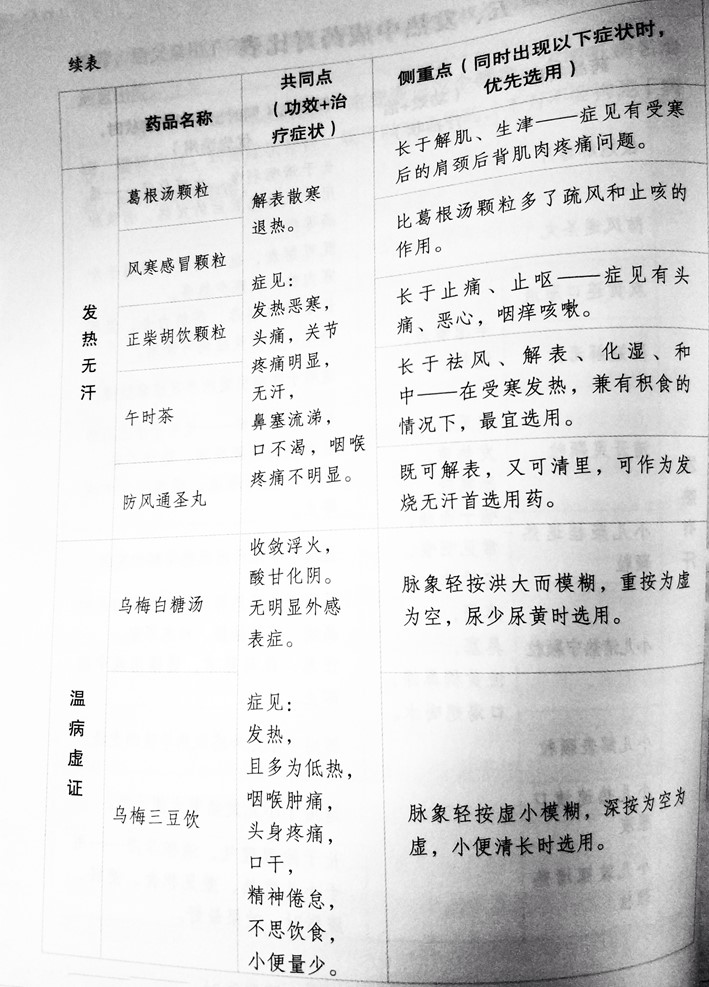 续表
药品名称
共同点
（功效+治
疗症状）
侧重点（同时出现以下症状时，
优先选用）
发热无汗
葛根汤颗粒
风寒感冒颗粒
正柴胡饮颗粒
午时茶
防风通圣丸
解表散寒
退热。
症见：
发热恶寒，
头痛，关节
疼痛明显，
无汗，
鼻塞流涕，
口不渴，咽喉
疼痛不明显。
长于解肌、生津——症见有受寒
后的肩颈后背肌肉疼痛问题。
比葛根汤颗粒多了疏风和止咳的
作用。
长于止痛、止呕——症见有头
痛、恶心，咽痒咳嗽。
长于祛风、解表、化湿、和
中——在受寒发热，兼有积食的
情况下，最宜选用。
既可解表，又可清里，可作为发
烧无汗首选用药。
温病虚证
乌梅白糖汤
乌梅三豆饮
收敛浮火，
酸甘化阴。
无明显外感
表症。
症见：
发热，
且多为低热，
咽喉肿痛，
头身疼痛，
口干，
精神倦怠，
不思饮食，
小便量少。
脉象轻按洪大而模糊，重按为虚
为空，尿少尿黄时选用。
脉象轻按虚小模糊，深按为空为
虚，小便清长时选用。